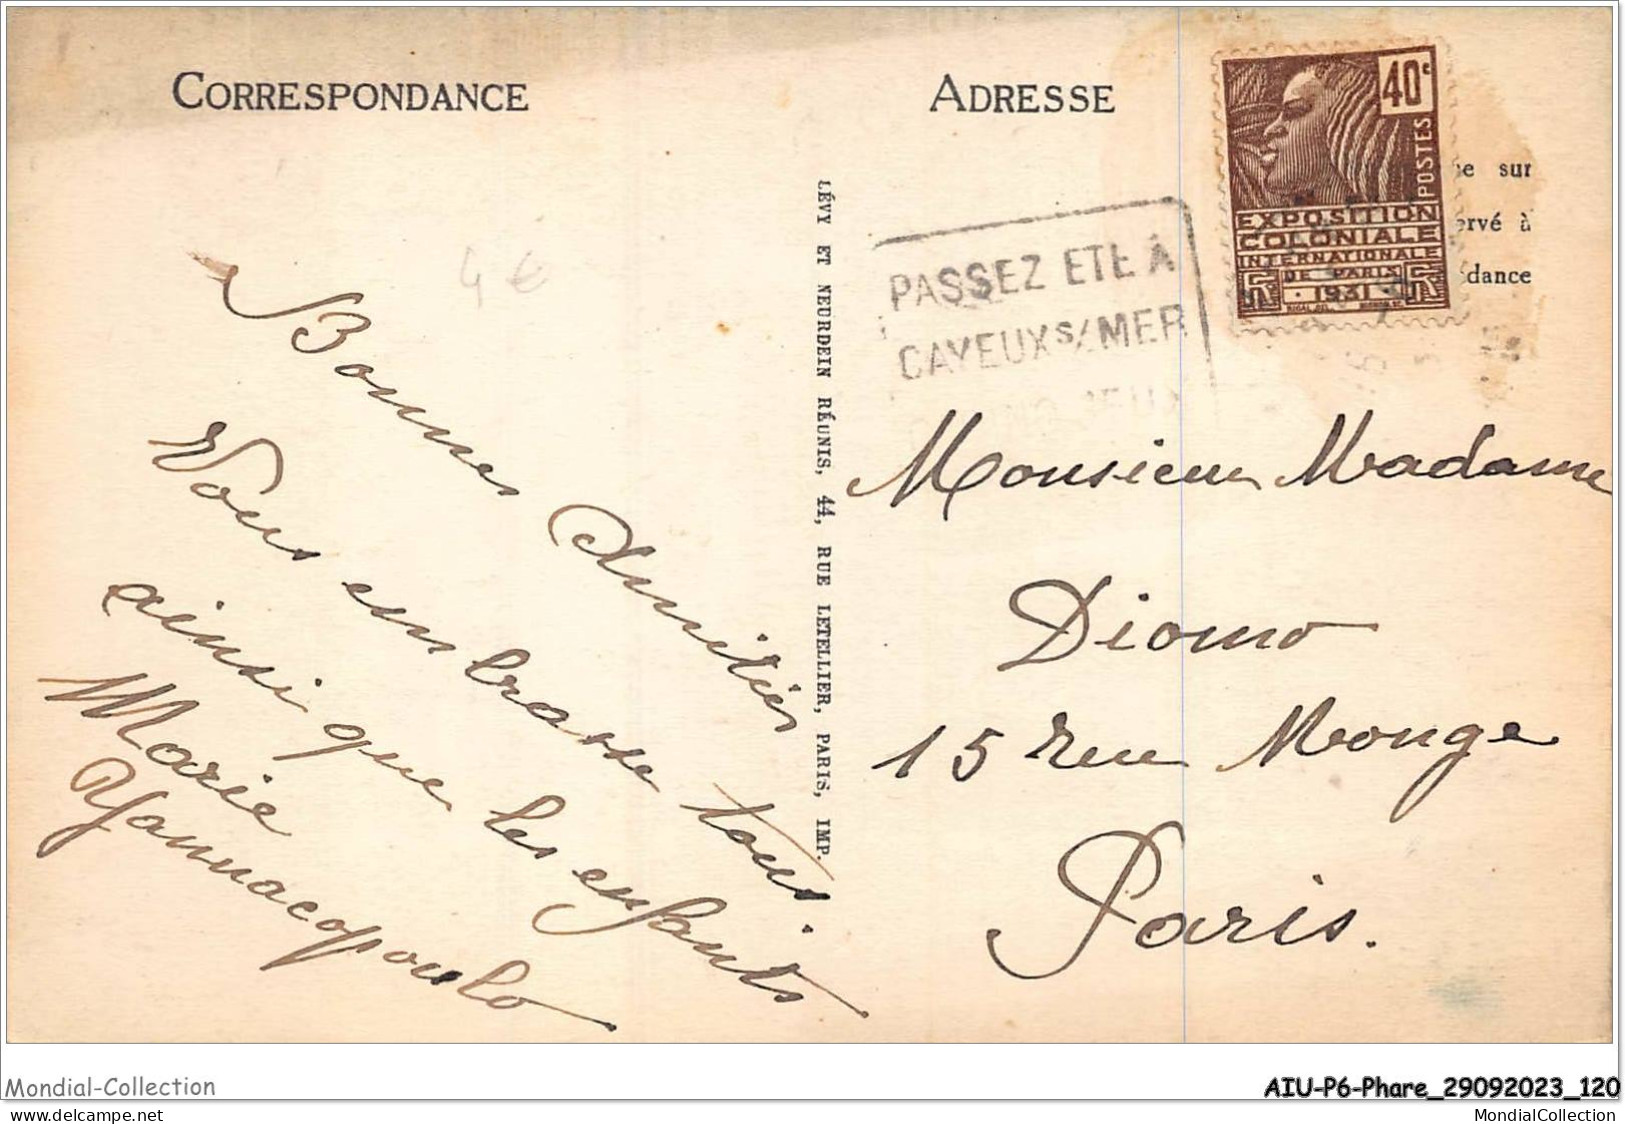 CORRESPONDANCE
ADRESSE
40c
POSTES
EXPOSITION
COLONIALE
INTERNATIONALE
DE PARIS
1931
e sur
ervé à
dance
PASSEZ ETE A
CAYEUX S/MER
LÉVY ET NEURDEIN RÉUNIS, 44, RUE LETELLIER, PARIS, IMP.
4 €
Bonnes Amitiés
Vous embrasse tous.
ainsi que les enfants
Marie
Yannacopoulo
Monsieur Madame
Diomo
15 rue Monge
Paris.
Mondial-Collection
AIU-P6-Phare_29092023_120
www.delcampe.net
MondialCollection